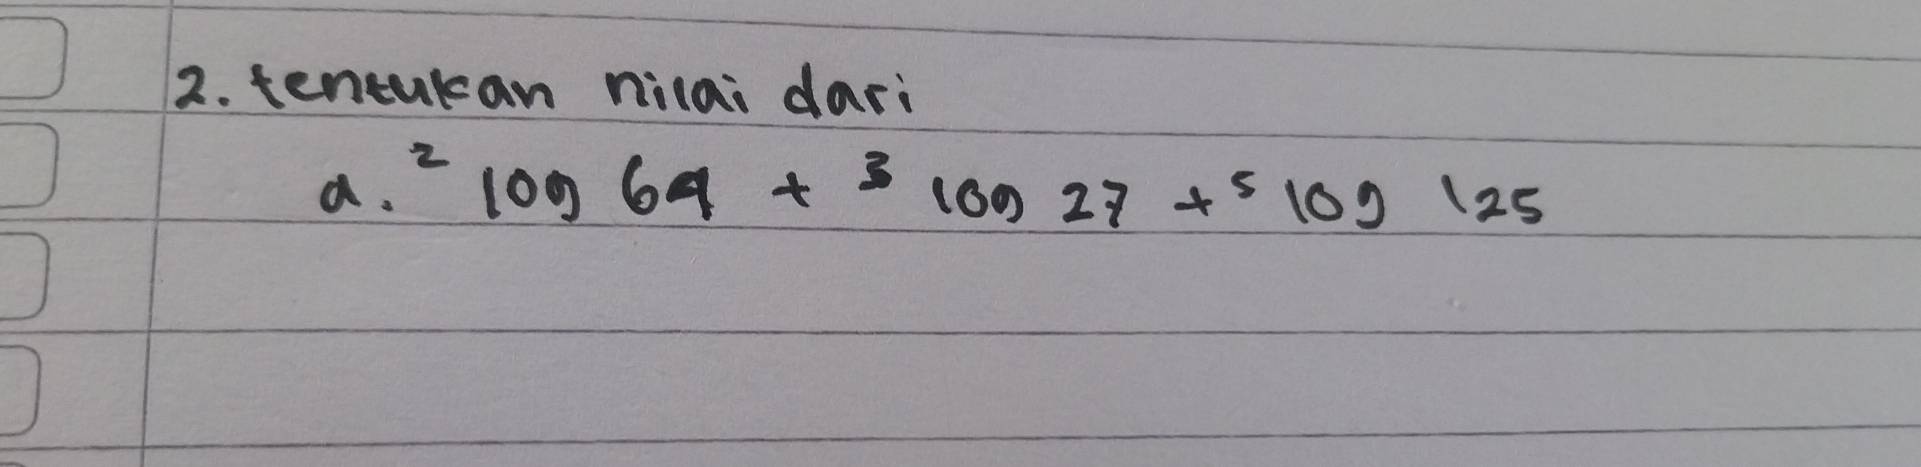 2. tentukan nilai dari
a. ² log 64 + ³ log 27 + ⁵ log 125